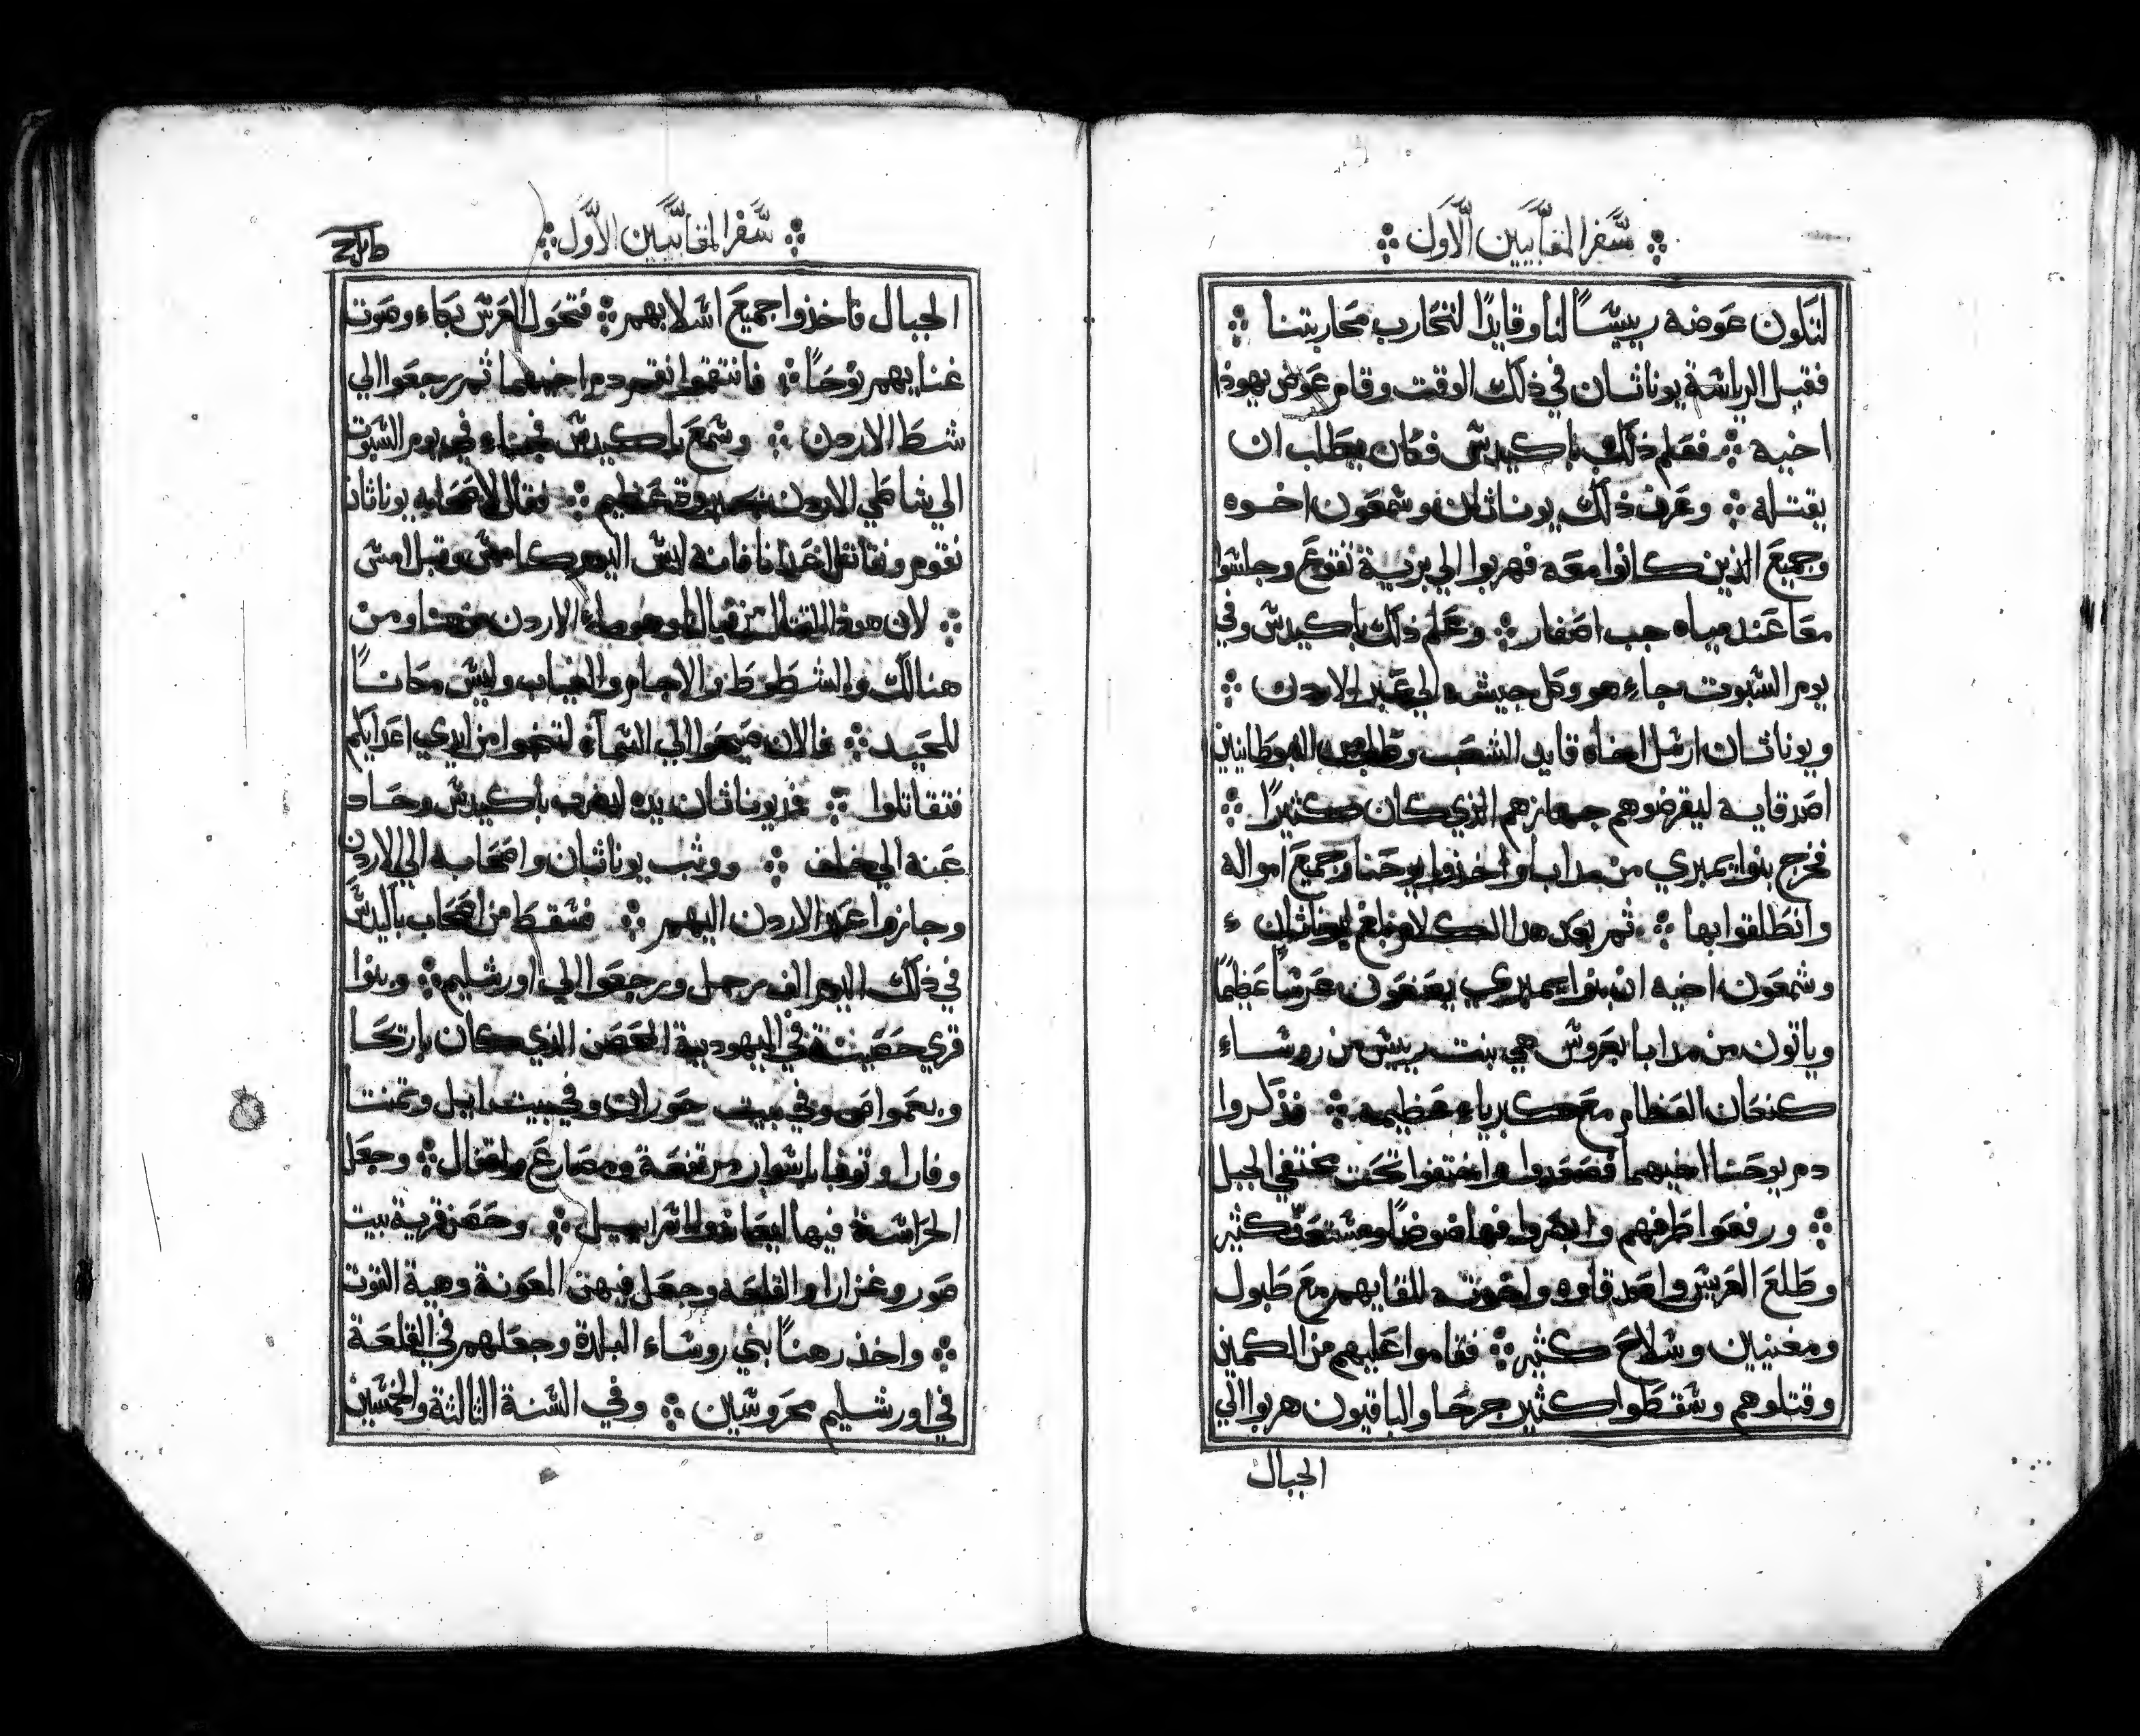 سفر المقابيين الاول
لتكون عوضه رييسًا لنا وقايدًا لتحارب محاربتنا
فقبل الرياسة يوناثان في ذلك الوقت وقام عوض يهوذا
اخيه فعلم ذلك باكيدس فكان يطلب ان
يقتله وعرف ذلك يوناثان وشمعون اخوه
وجميع الذين كانوا معه فهربوا الي برية تقوع وجلسوا
معا عند مياه جب اصفار وعلم ذلك باكيدس وفي
يوم السبوت جاء هو وكل جيشه الي عبر الاردن
ويوناثان ارسل اخاه قايد الشعب وطلب من النبوطانيين
اصدقايه ليقرضوهم جهازهم الذي كان كثيرًا
فخرج بنوا يمبري من مدابا واخذوا يوحنا وجميع امواله
وانطلقوا بها ثم بعد هذا الكلام بلغ يوناثان
وشمعون اخيه ان بنوا يمبري يصنعون عرسًا عظيمًا
وياتون من مدابا بعروس هي بنت رييس من روساء
كنعان العظام مع كبرياء عظيمه فذكروا
دم يوحنا اخيهما فصعدوا واختفوا تحت مختفي الجبل
ورفعوا طرفهم وابصروا فها ضوضا ومستعدّ كثير
وطلع العريس واصدقاوه واخوته للقايهم مع طبول
ومغنيين وسلاح كثير فقاموا عليهم من الكمين
وقتلوهم وسقطوا كثير جرحا والباقيون هربوا الي
الجبال
سفر المقابيين الاول
الجبال فاخذوا جميع اسلابهم فتحول العرس بكاء وصوت
غنايهم نوحًا فانتقموا نقم دم اخيهما ثم رجعوا الي
شط الاردن وسمع باكيدس فجاء في يوم السبوت
الي شاطي الاردن بقوة عظيم فقال لاصحابه يوناثان
نقوم ونقاتل اعدانا فانه ليس اليوم كامس وقبل امس
لان هوذا القتال من قبالنا وهو ماء الاردن من هنا ومن
هنالك والشطوط والاجام والغياب وليس مكانًا
للحيد فالان صيحوا الي السماء لتنجوا من ايدي اعدايكم
فتقاتلوا فمد يوناثان يده ليضرب باكيدس وحاد
عنه الي خلف ووثب يوناثان واصحابه الي الاردن
وجازوا عبر الاردن اليهم فسقط من اصحاب باكيدس
في ذلك اليوم الف رجل ورجعوا الي اورشليم وبنوا
قري حصينة في اليهودية الحصن الذي كان باريحا
وبعمواص وفي بيت حوران وفي بيت ايل وتمنتا
وفارا وتوفا باسوار مرتفعة ومصارع واقفال وجعل
الحراسة فيها ليعاندوا اسراييل وحصن قرية بيت
صور وغزارا والقلعه وجعل فيهن المعونة وهية القوت
واخذ رهنًا بني روساء البلدة وجعلهم في القلعة
في اورشليم محروسين وفي السنة الثالثة والخمسين